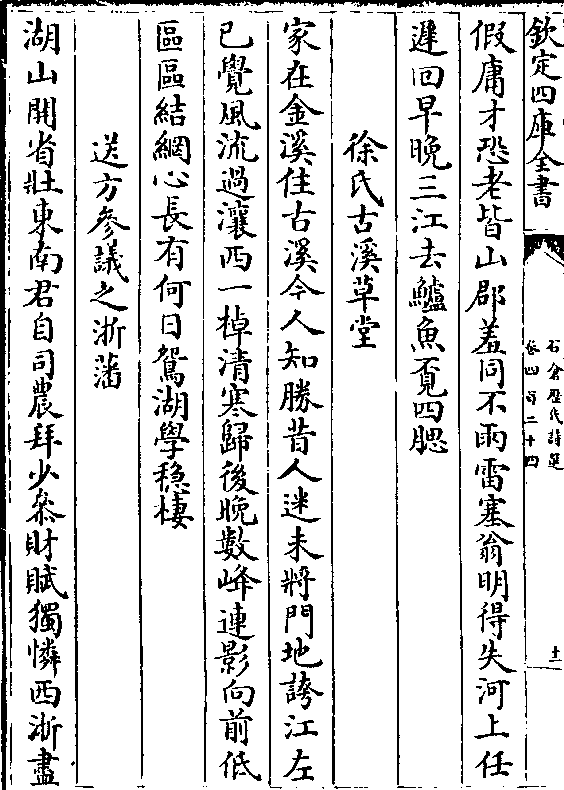 欽定四庫全書
石倉歷代詩選
卷四百二十四
十二
假庸才恐老皆山郡羞同不雨雷塞翁明得失河上任
遲回早晚三江去鱸魚覔四腮
徐氏古溪草堂
家在金溪住古溪今人知勝昔人迷未將門地誇江左
已覺風流過瀼西一棹清寒歸後晚數峰連影向前低
區區結網心長有何日鴛湖學穏棲
送方參議之浙藩
湖山開省壯東南君自司農拜少叅財賦獨憐西浙盡